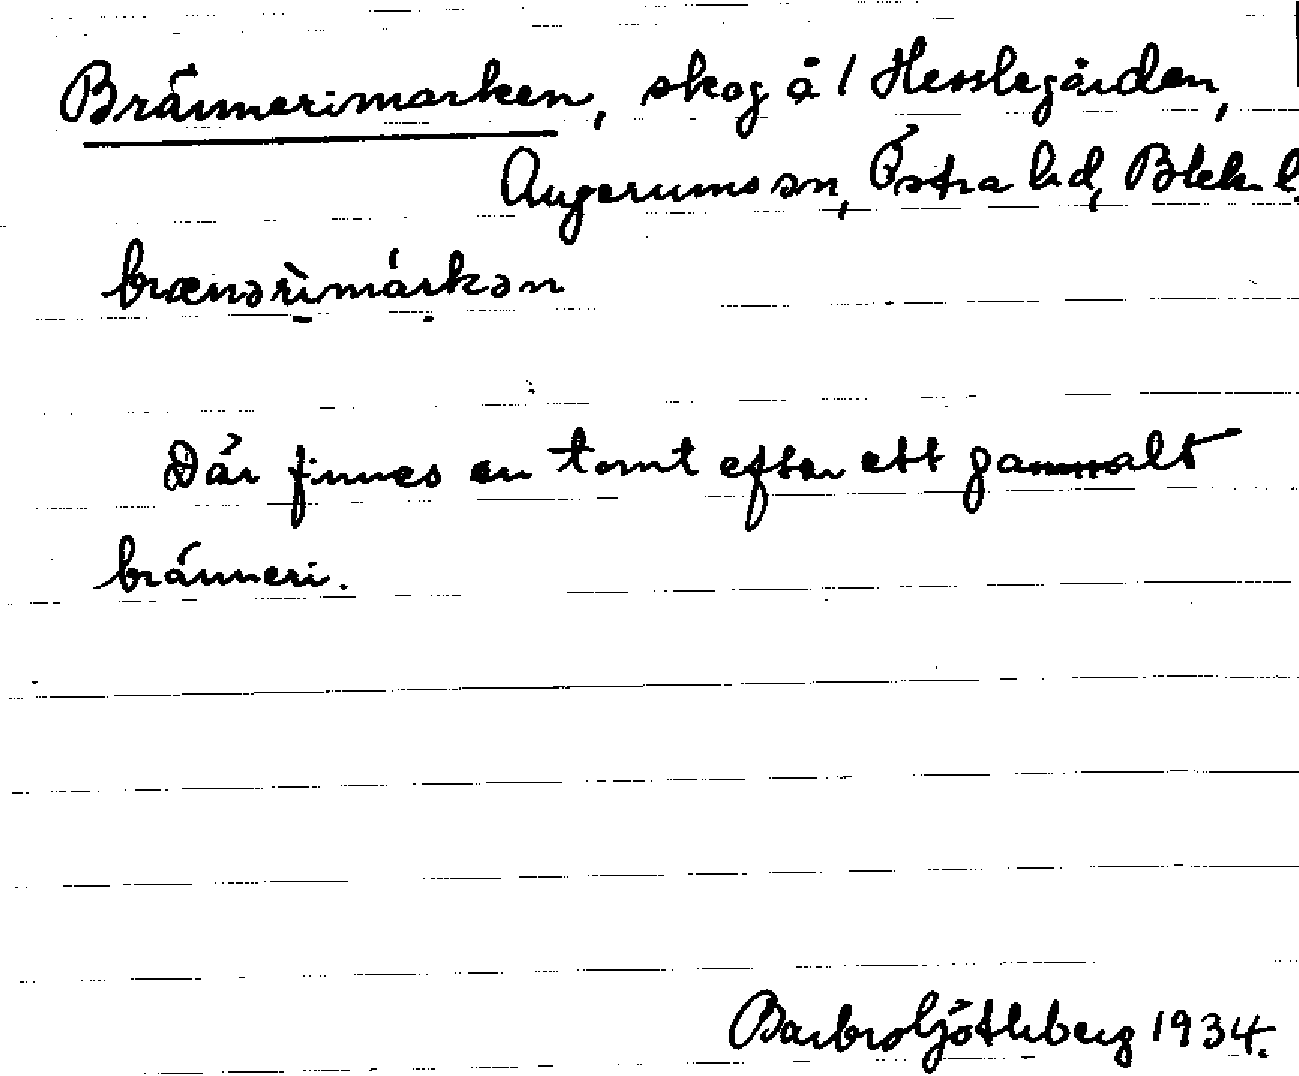 Brännerimarken, skog å 1 Hesslegården,
Augerums sn, Östra hd, Blek. l.
brænərìmárkən
Där finnes en tomt efter ett gammalt
bränneri.
Barbro Götheberg 1934.